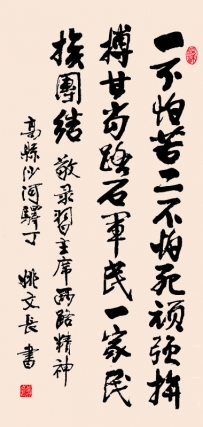 一不怕苦二不怕死顽强拚
搏甘当路石軍民一家民
族團结 敬录習主席两路精神
高縣沙河驛丁 姚文長書